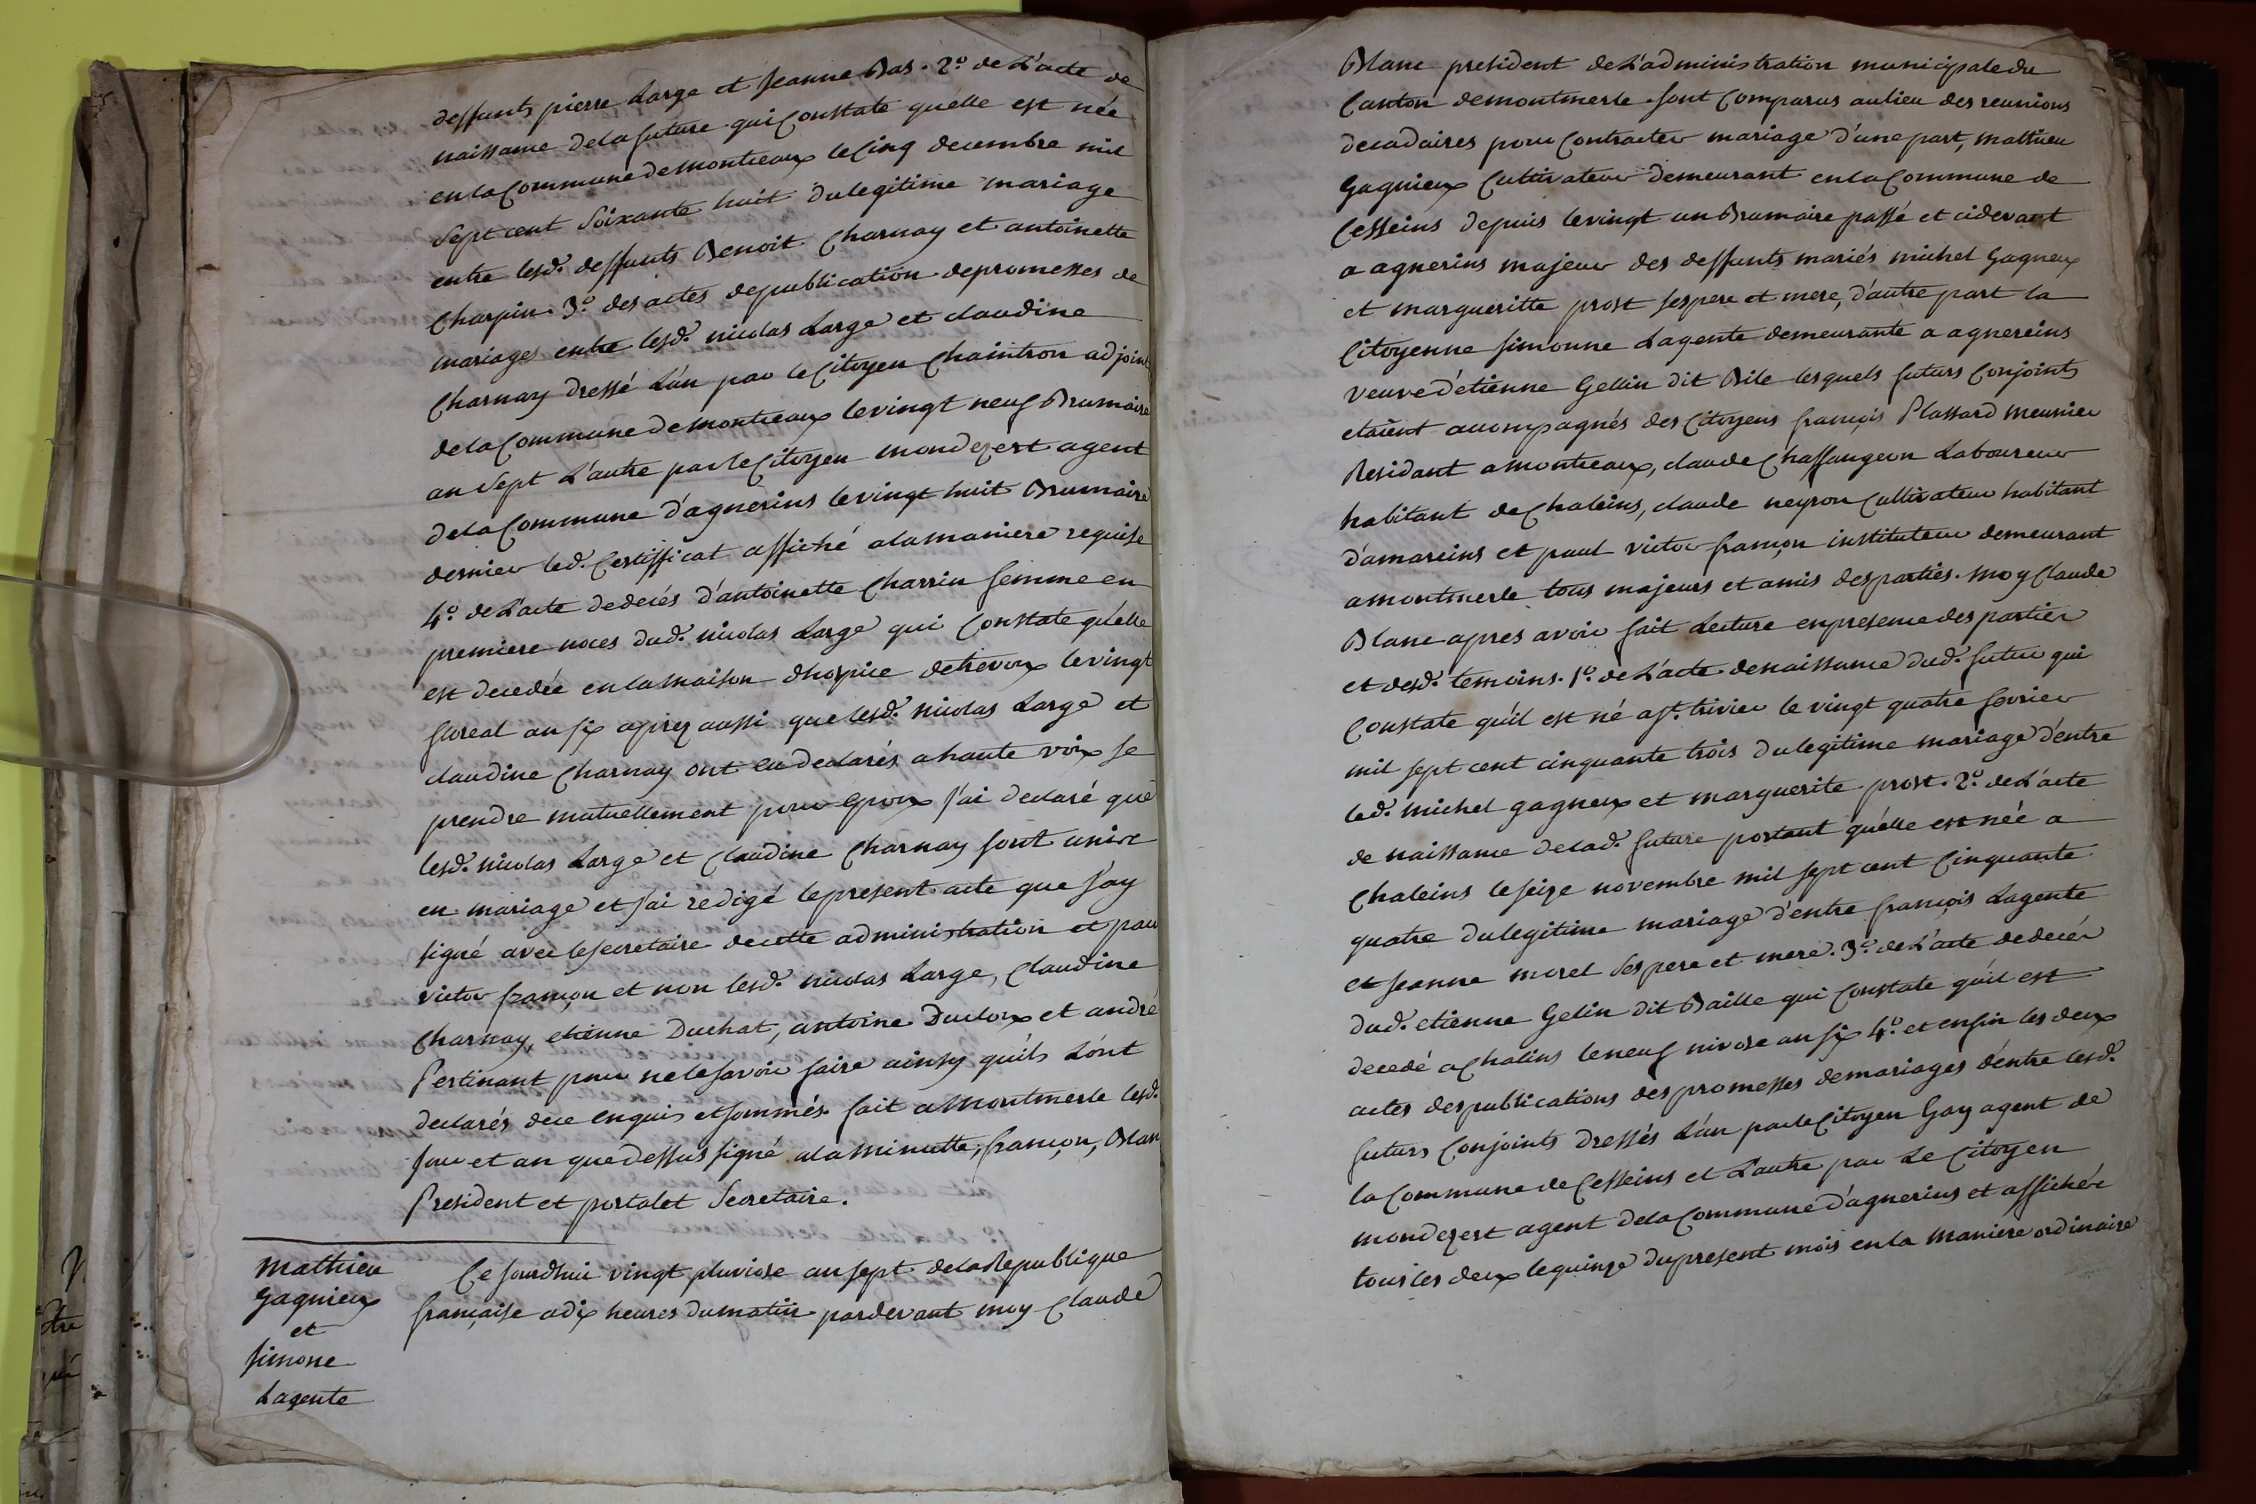 deffunts pierre Large et Jeanne Bas. 2.° de L'acte de
naissance dela future qui Constate quélle est née
en la Commune de montceaux le Cinq decembre mil
Sept cent Soixante huit du legitime mariage
entre lesd. deffunts Benoit Charnay et antoinette
Charpin. 3.° des actes de publication de promesses de
mariages entre lesd. nicolas Large et claudine
Charnay dressé L'ún par le Citoyen Chaintron adjoint
de la Commune de montceaux le vingt neuf Brumaire
an Sept L'autre par le Citoyen mondezert agent
de la Commune d'agnerins le vingt huit Brumaire
dernier led. Certifficat affiché a la maniere requise
4.° de L'acte de decés d'antoinette Charrin femme en
premiere noces dud. nicolas Large qui Constate quélle
est decedée en la maison dhospice de trevoux le vingt
floreal an six aprez aussi que lesd. nicolas Large et
claudine Charnay ont eu declarés a haute voix se
prendre mutuellement pour Epoux j'ai declaré que
lesd. nicolas Large et Claudine Charnay sont unis
en mariage et j'ai redigé le present acte que j'ay
signé avec le secretaire de cette administration et paul
victor françon et non lesd. nicolas Large, Claudine
Charnay, etienne Duchat, antoine Ducloux et andré
Pertinant pour ne le savoir faire ainsy quils L'ónt
declarés de ce enquis et sommés. fait a Montmerle lesd.
jour et an que dessus signé a la minutte, françon, Blan
President et portalet Secretaire.
mathieu
gagnieux
et
simone
Lagente
Ce jourdhui vingt pluviose an sept de la Republique
française a dix heures du matin pardevant moy Claude
Blanc president de L'administration municipale du
Canton de montmerle. sont Comparus au lieu des reunions
decadaires pour Contracter mariage d'une part, mathieu
Gagnieux Cultivateur demeurant en la Commune de
Cesseins depuis le vingt un Brumaire passé et cidevant
a agnerins majeur des deffunts mariés michel Gagneux
et margueritte prost ses pere et mere, d'autre part la
Citoyenne simonne Lagente demeurante a agnereins
veuve d'étienne Gellin dit Bile lesquels futurs Conjoints
etaient accompagnés des Citoyens françois Plassard meunier
Residant a montceaux, claude Chaffangeon Laboureur
habitant de Chaleins, claude neyron Cultivateur habitant
d'amareins et paul victor françon instituteur demeurant
a montmerle tous majeurs et amis des parties. moy Claude
Blanc apres avoir fait Lecture en presence des parties
et desd. temoins. 1.° de L'acte de naissance dud. futur qui
Constate qu'il est né a st. trivier le vingt quatre fevrier
mil sept cent cinquante trois du legitime mariage d'entre
led. michel gagneux et marguerite prost. 2.° de L'acte
de naissance de lad. future portant quélle est née a
Chaleins le seize novembre mil sept cent Cinquante
quatre du legitime mariage d'entre françois Lagente
et Jeanne morel Ses pere et mere. 3.° de L'acte de decés
dud. etienne Gelin dit Baille qui Constate qúil est
decedé a Chalins le neuf nivose an six 4.° et enfin les deux
actes des publications des promesses de mariages d'entre lesd.
futurs Conjoints dressés L'ún par le Citoyen Gay agent de
la Commune de Cesseins et L'autre par Le Citoyen
mondezert agent de la Commune d'agnerins et affichés
tous les deux le quinze du present mois en la maniere ordinaire